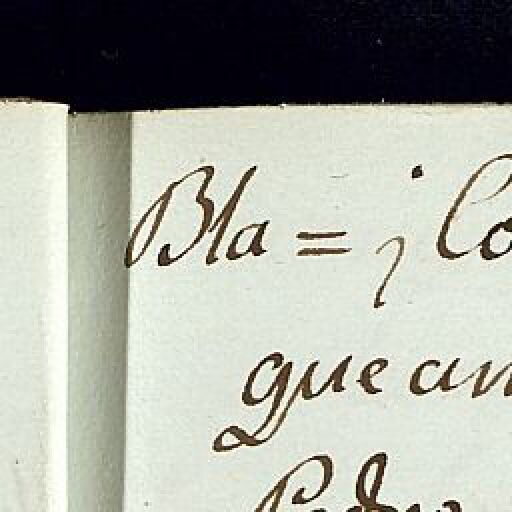 Bla = ¿ Co
que an
Pedro